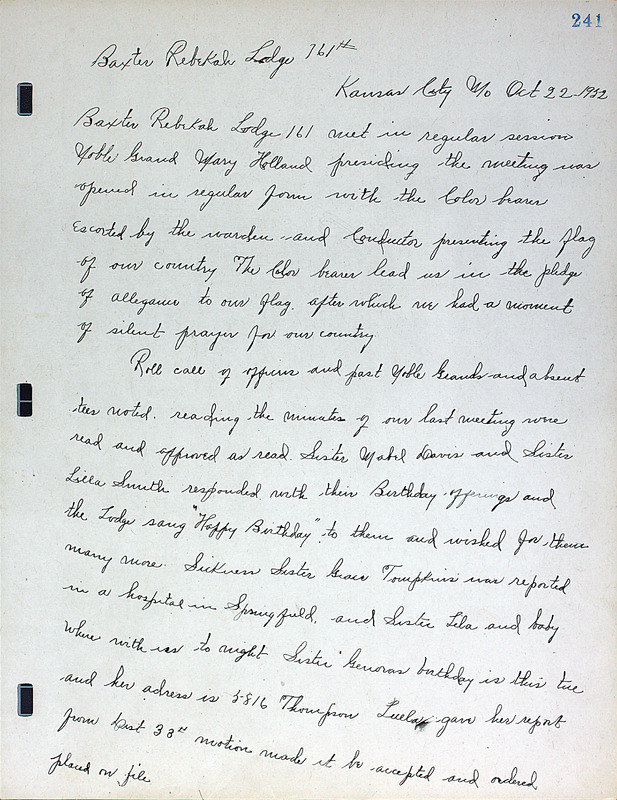 241
Baxter Rebekah Lodge 161st
Kansas City Mo Oct 22-1952
Baxter Rebekah Lodge 161 met in regular session
Noble Grand Mary Holland presiding the meeting was
opened in regular form with the Color bearer
escorted by the warden and Conductor presenting the flag
of our country The Color bearer lead us in the pledge
of allegance to our flag. after which we had a moment
of silent prayer for our country
Roll call of officers and past Noble Grands and absent
tees noted. reading the minutes of our last meeting were
read and approved as read. Sister Mabel Davis and Sister
Lilla Smith responded with their Birthday offerings and
the Lodge sang "Happy Birthday" to them and wished for them
many more. Sickness Sister Grace Tompkins was reported
in a hospital in Springfield, and Sister Lela and baby
where with us to night Sister Genoras birthday is this tue
and her adress is 5816 Thompson Luela gave her report
from Dist 33rd motion made it be accepted and ordered
placed on file